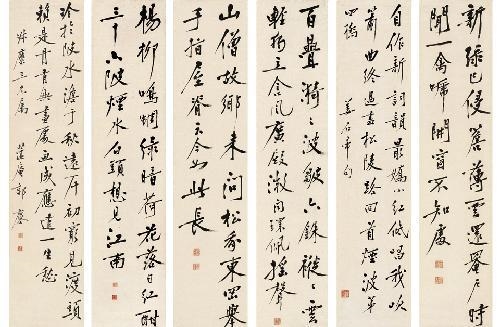 新綠已侵書薄雲還罨戶時
聞一禽嚅開窗不知處
自作新詞韻最嬌小紅低唱我吹
簫曲終過盡松陵路回首煙波第
四橋 姜石帚句
百疊漪漪波皺六銖縰縰雲
輕植立含風廣殿微聞環佩搖聲
山僧故鄉未問松為東岡舉
手指屋脊云今如此長
楊柳鳴蜩綠暗荷花落日紅酣
三十六陂煙水白頭想見江南
冷於陂水澹于秋遠陌初窮見渡頭
賴是丹青無畫處畫成應遣一生愁
三兄屬 郭麐